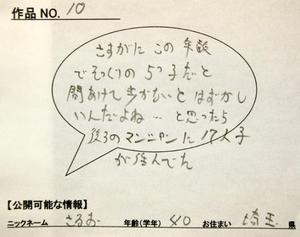 作品NO. 10
さすがに この 年齢
でそっくりの 5つ子だと
間あけて歩かないと はずかし
いんだよね… と思ったら
後ろのマンションに 17人子
が住んでた
【公開可能な情報】
ニックネーム さるお 年齢(学年) 40 お住まい 埼玉 県